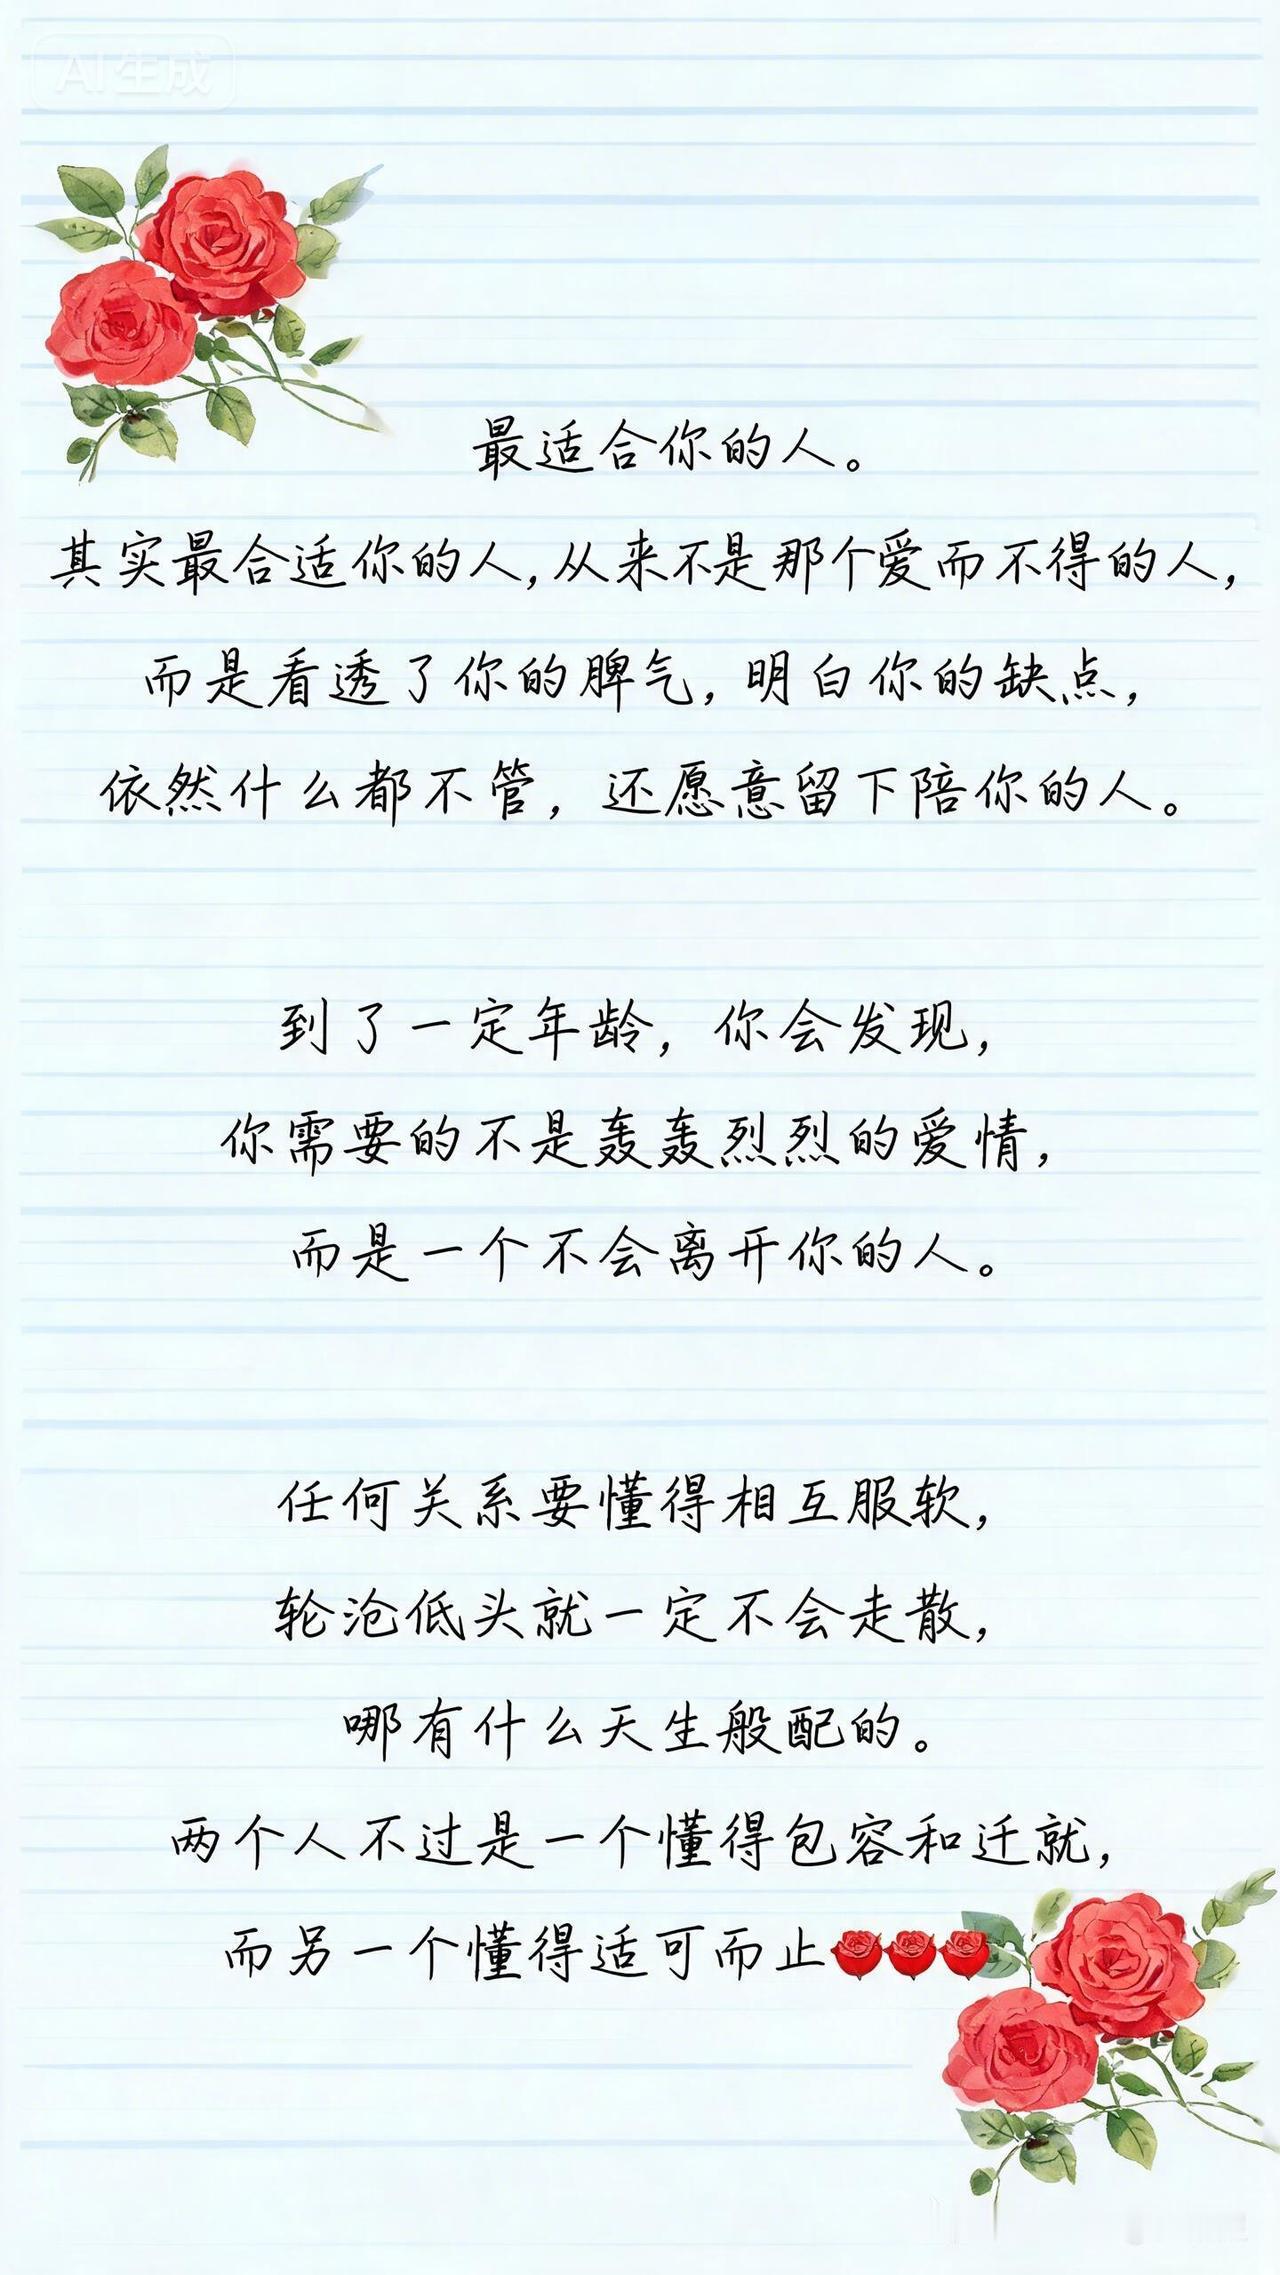 AI生成
最适合你的人。
其实最合适你的人,从来不是那个爱而不得的人,
而是看透了你的脾气,明白你的缺点,
依然什么都不管,还愿意留下陪你的人。
到了一定年龄,你会发现,
你需要的不是轰轰烈烈的爱情,
而是一个不会离开你的人。
任何关系要懂得相互服软,
轮沧低头就一定不会走散,
哪有什么天生般配的。
两个人不过是一个懂得包容和迁就,
而另一个懂得适可而止🌹🌹🌹